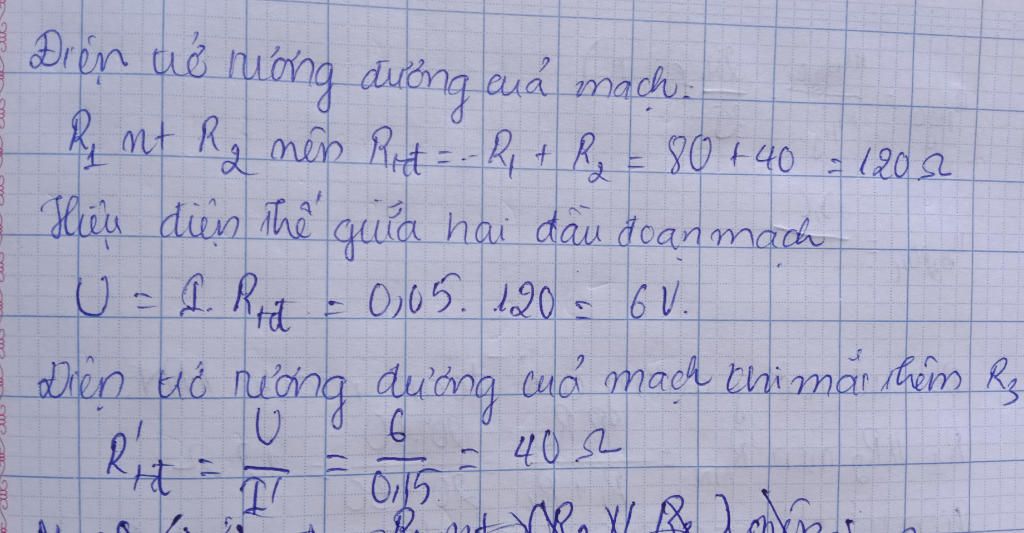 Điện trở tương đương của mạch:
R₁ nt R₂ nên Rtđ = R₁ + R₂ = 80 + 40 = 120 Ω
Hiệu điện thế giữa hai đầu đoạn mạch
U = I. Rtđ = 0,05. 120 = 6 V.
Điện trở tương đương của mạch khi mắc thêm R₃
R'tđ = U/I' = 6/0,15 = 40 Ω